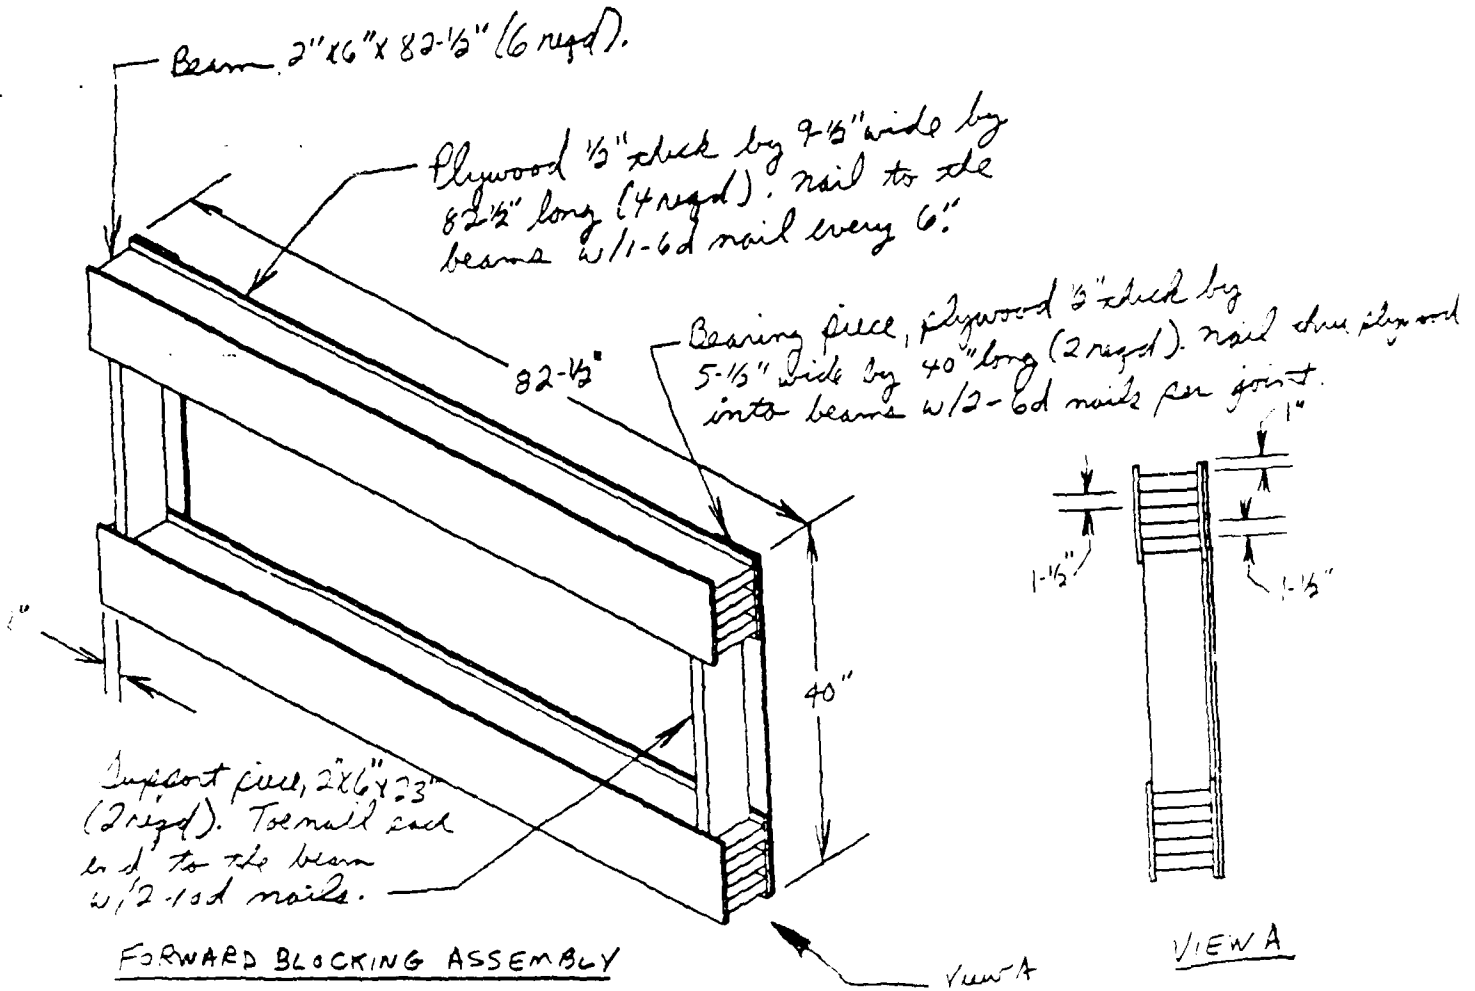 Beam 2"x6"x82-1/2" (6 reqd).
Plywood 1/2" thick by 9-1/2" wide by
82-1/2" long (4 reqd). Nail to the
beams w/1-6d nail every 6".
Bearing piece, plywood 1/2" thick by
5-1/2" wide by 40" long (2 reqd). Nail thru plywood
into beams w/2-6d nails per joint.
82-1/2"
1"
1-1/2"
1-1/2"
40"
1"
Support piece, 2"x6"x23"
(2 reqd). Toenail each
end to the beam
w/2-10d nails.
FORWARD BLOCKING ASSEMBLY
View A
VIEW A